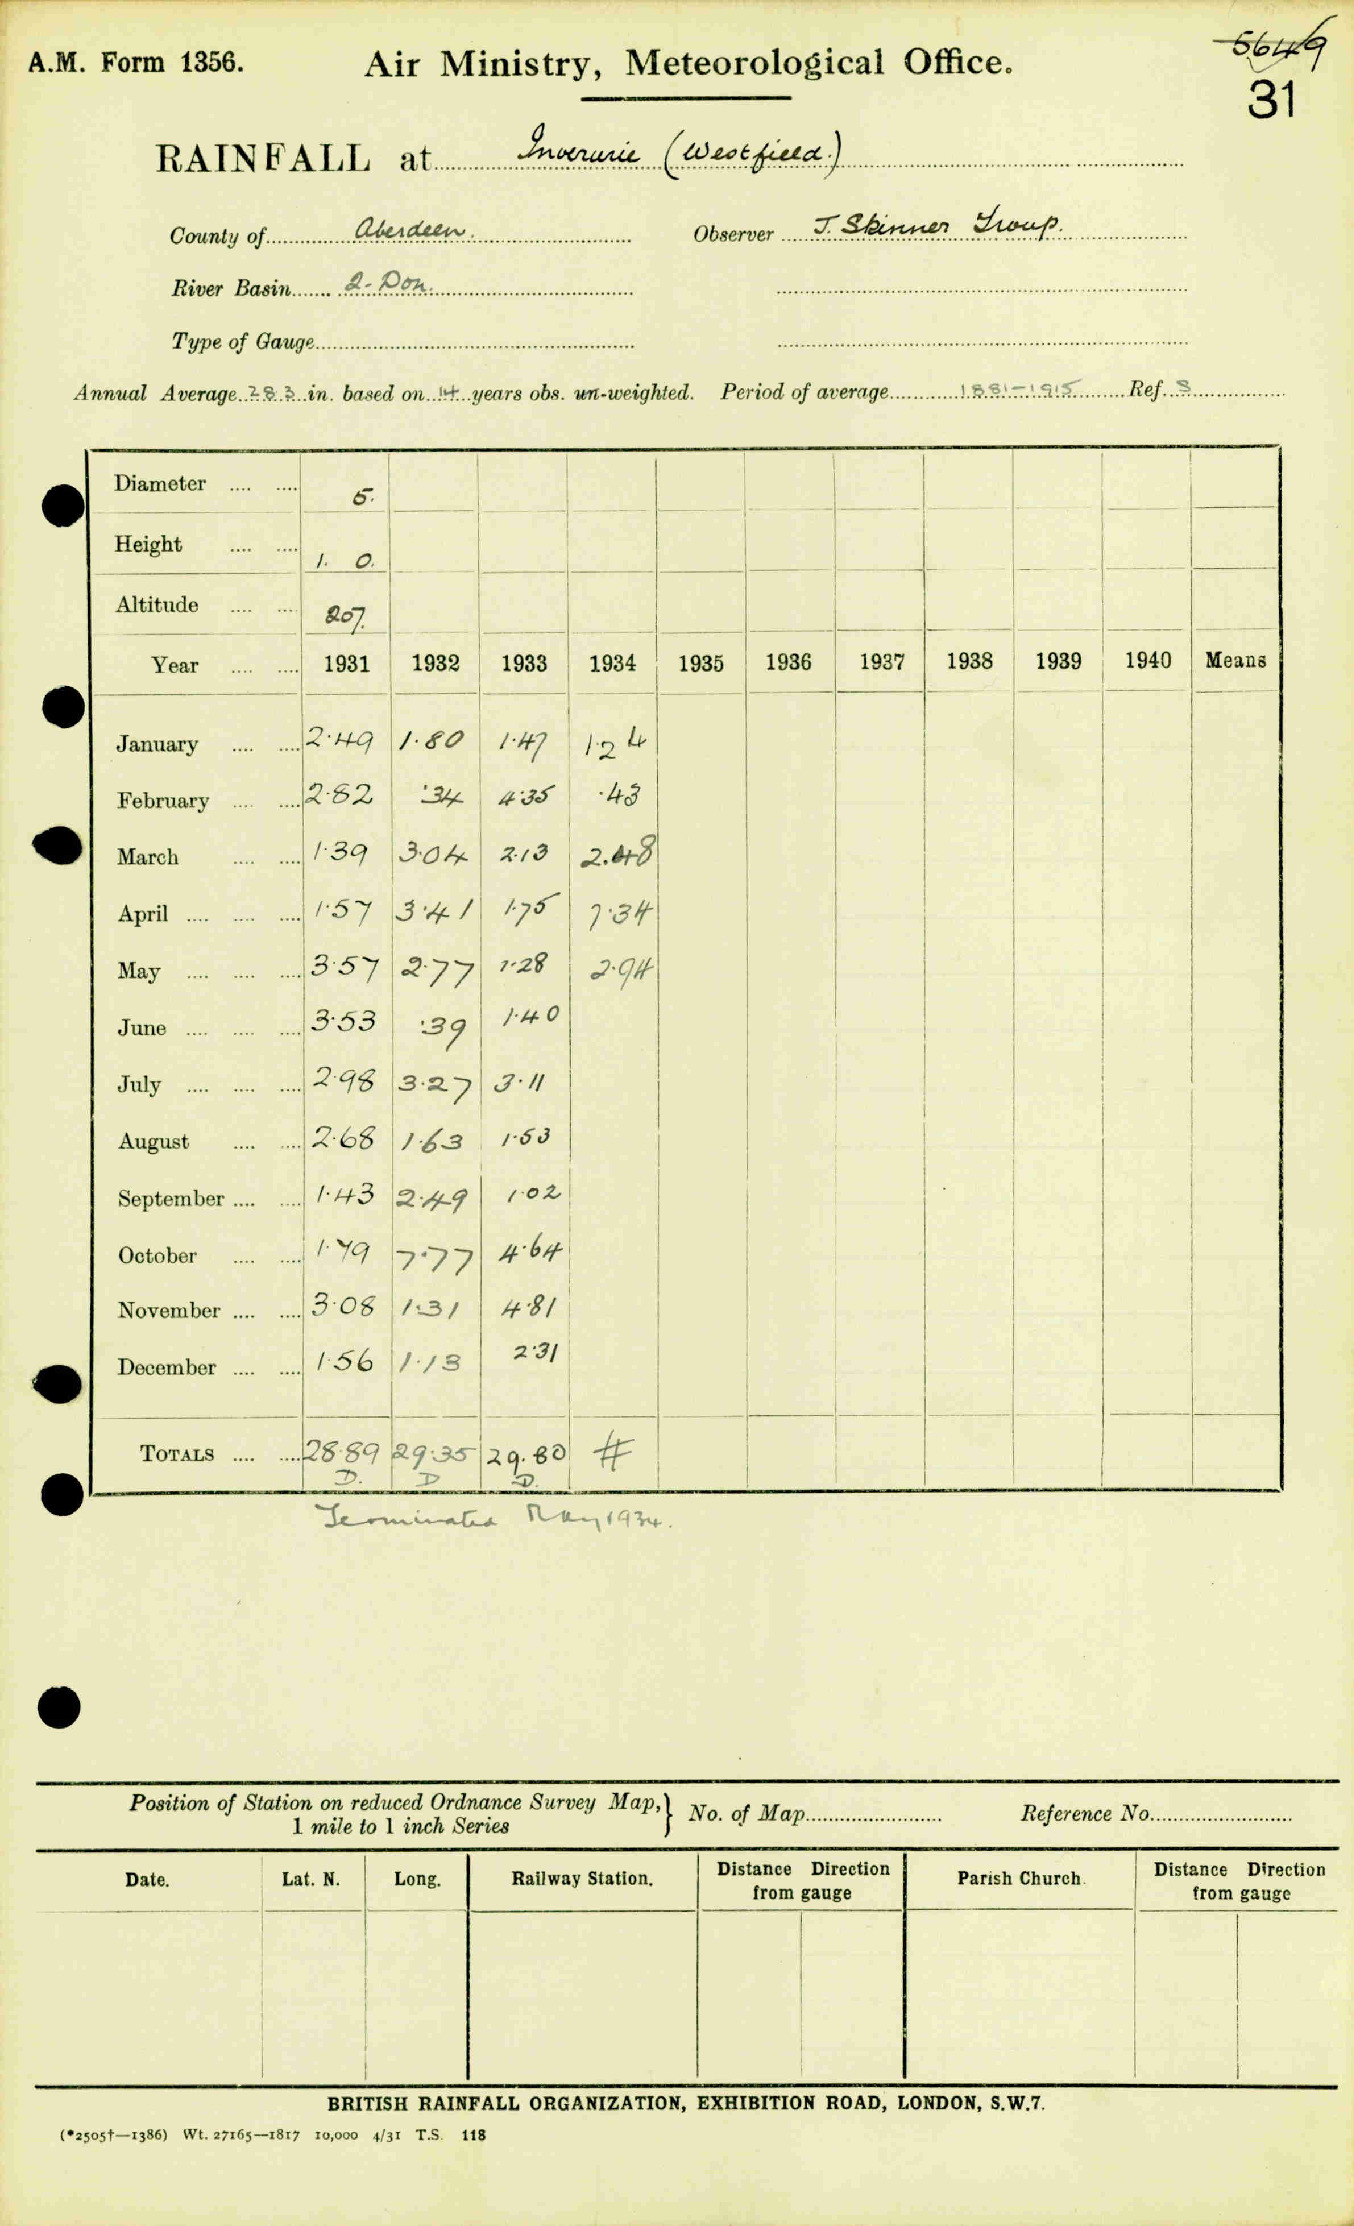 5649
A.M. Form 1356. Air Ministry, Meteorological Office.
31
RAINFALL at Inverurie (Westfield.)
County of Aberdeen. Observer J. Skinner Troup.
River Basin 2-Don.
Type of Gauge
Annual Average 28.3 in. based on 14 years obs. un-weighted. Period of average 1881-1915 Ref. S
Diameter .... .... 5.
Height .... .... 1. 0.
Altitude .... .... 207.
Year .... .... 1931 1932 1933 1934 1935 1936 1937 1938 1939 1940 Means
January .... .... 2·49 1·80 1·47 1·24
February .... .... 2·82 ·34 4·35 ·43
March .... .... 1·39 3·04 2·13 2.48
April .... .... .... 1·57 3·41 1·75 7·34
May .... .... .... 3·57 2·77 1·28 2·94
June .... .... .... 3·53 ·39 1·40
July .... .... .... 2·98 3·27 3·11
August .... .... 2·68 1·63 1·53
September .... .... 1·43 2·49 1·02
October .... .... 1·79 7·77 4·64
November .... .... 3·08 1·31 4·81
December .... .... 1·56 1·13 2·31
TOTALS .... .... 28·89 29·35 29.80 #
D. D D.
Terminated May 1934.
Position of Station on reduced Ordnance Survey Map, } No. of Map Reference No.
1 mile to 1 inch Series
Date. Lat. N. Long. Railway Station. Distance Direction from gauge Parish Church. Distance Direction from gauge
BRITISH RAINFALL ORGANIZATION, EXHIBITION ROAD, LONDON, S.W.7.
(*2505†—1386) Wt. 27165—1817 10,000 4/31 T.S. 118